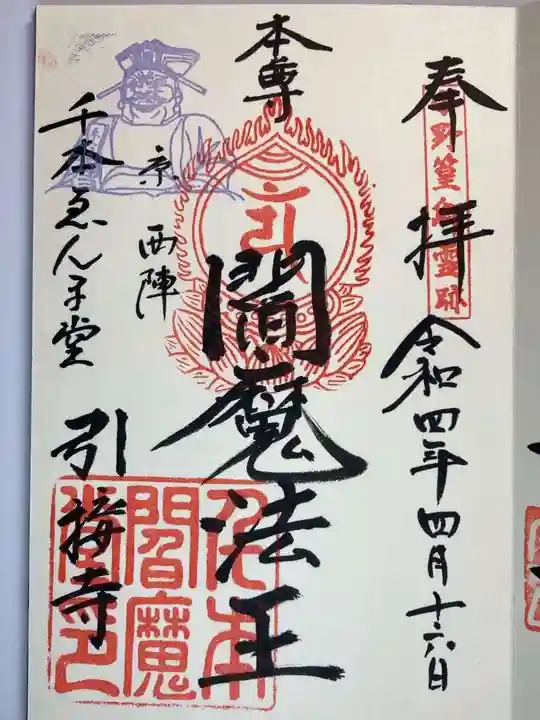 奉拝
令和四年四月十六日
小野篁公霊跡
本尊
閻魔法王
京西陣
千本ゑんま堂
引接寺
千本閻魔堂印